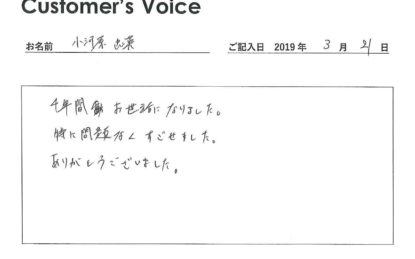 Customer's Voice
お名前 小河原 ご記入日 2019年 3月21日
4年間お世話になりました。
特に問題なくすごせました。
ありがとうございました。